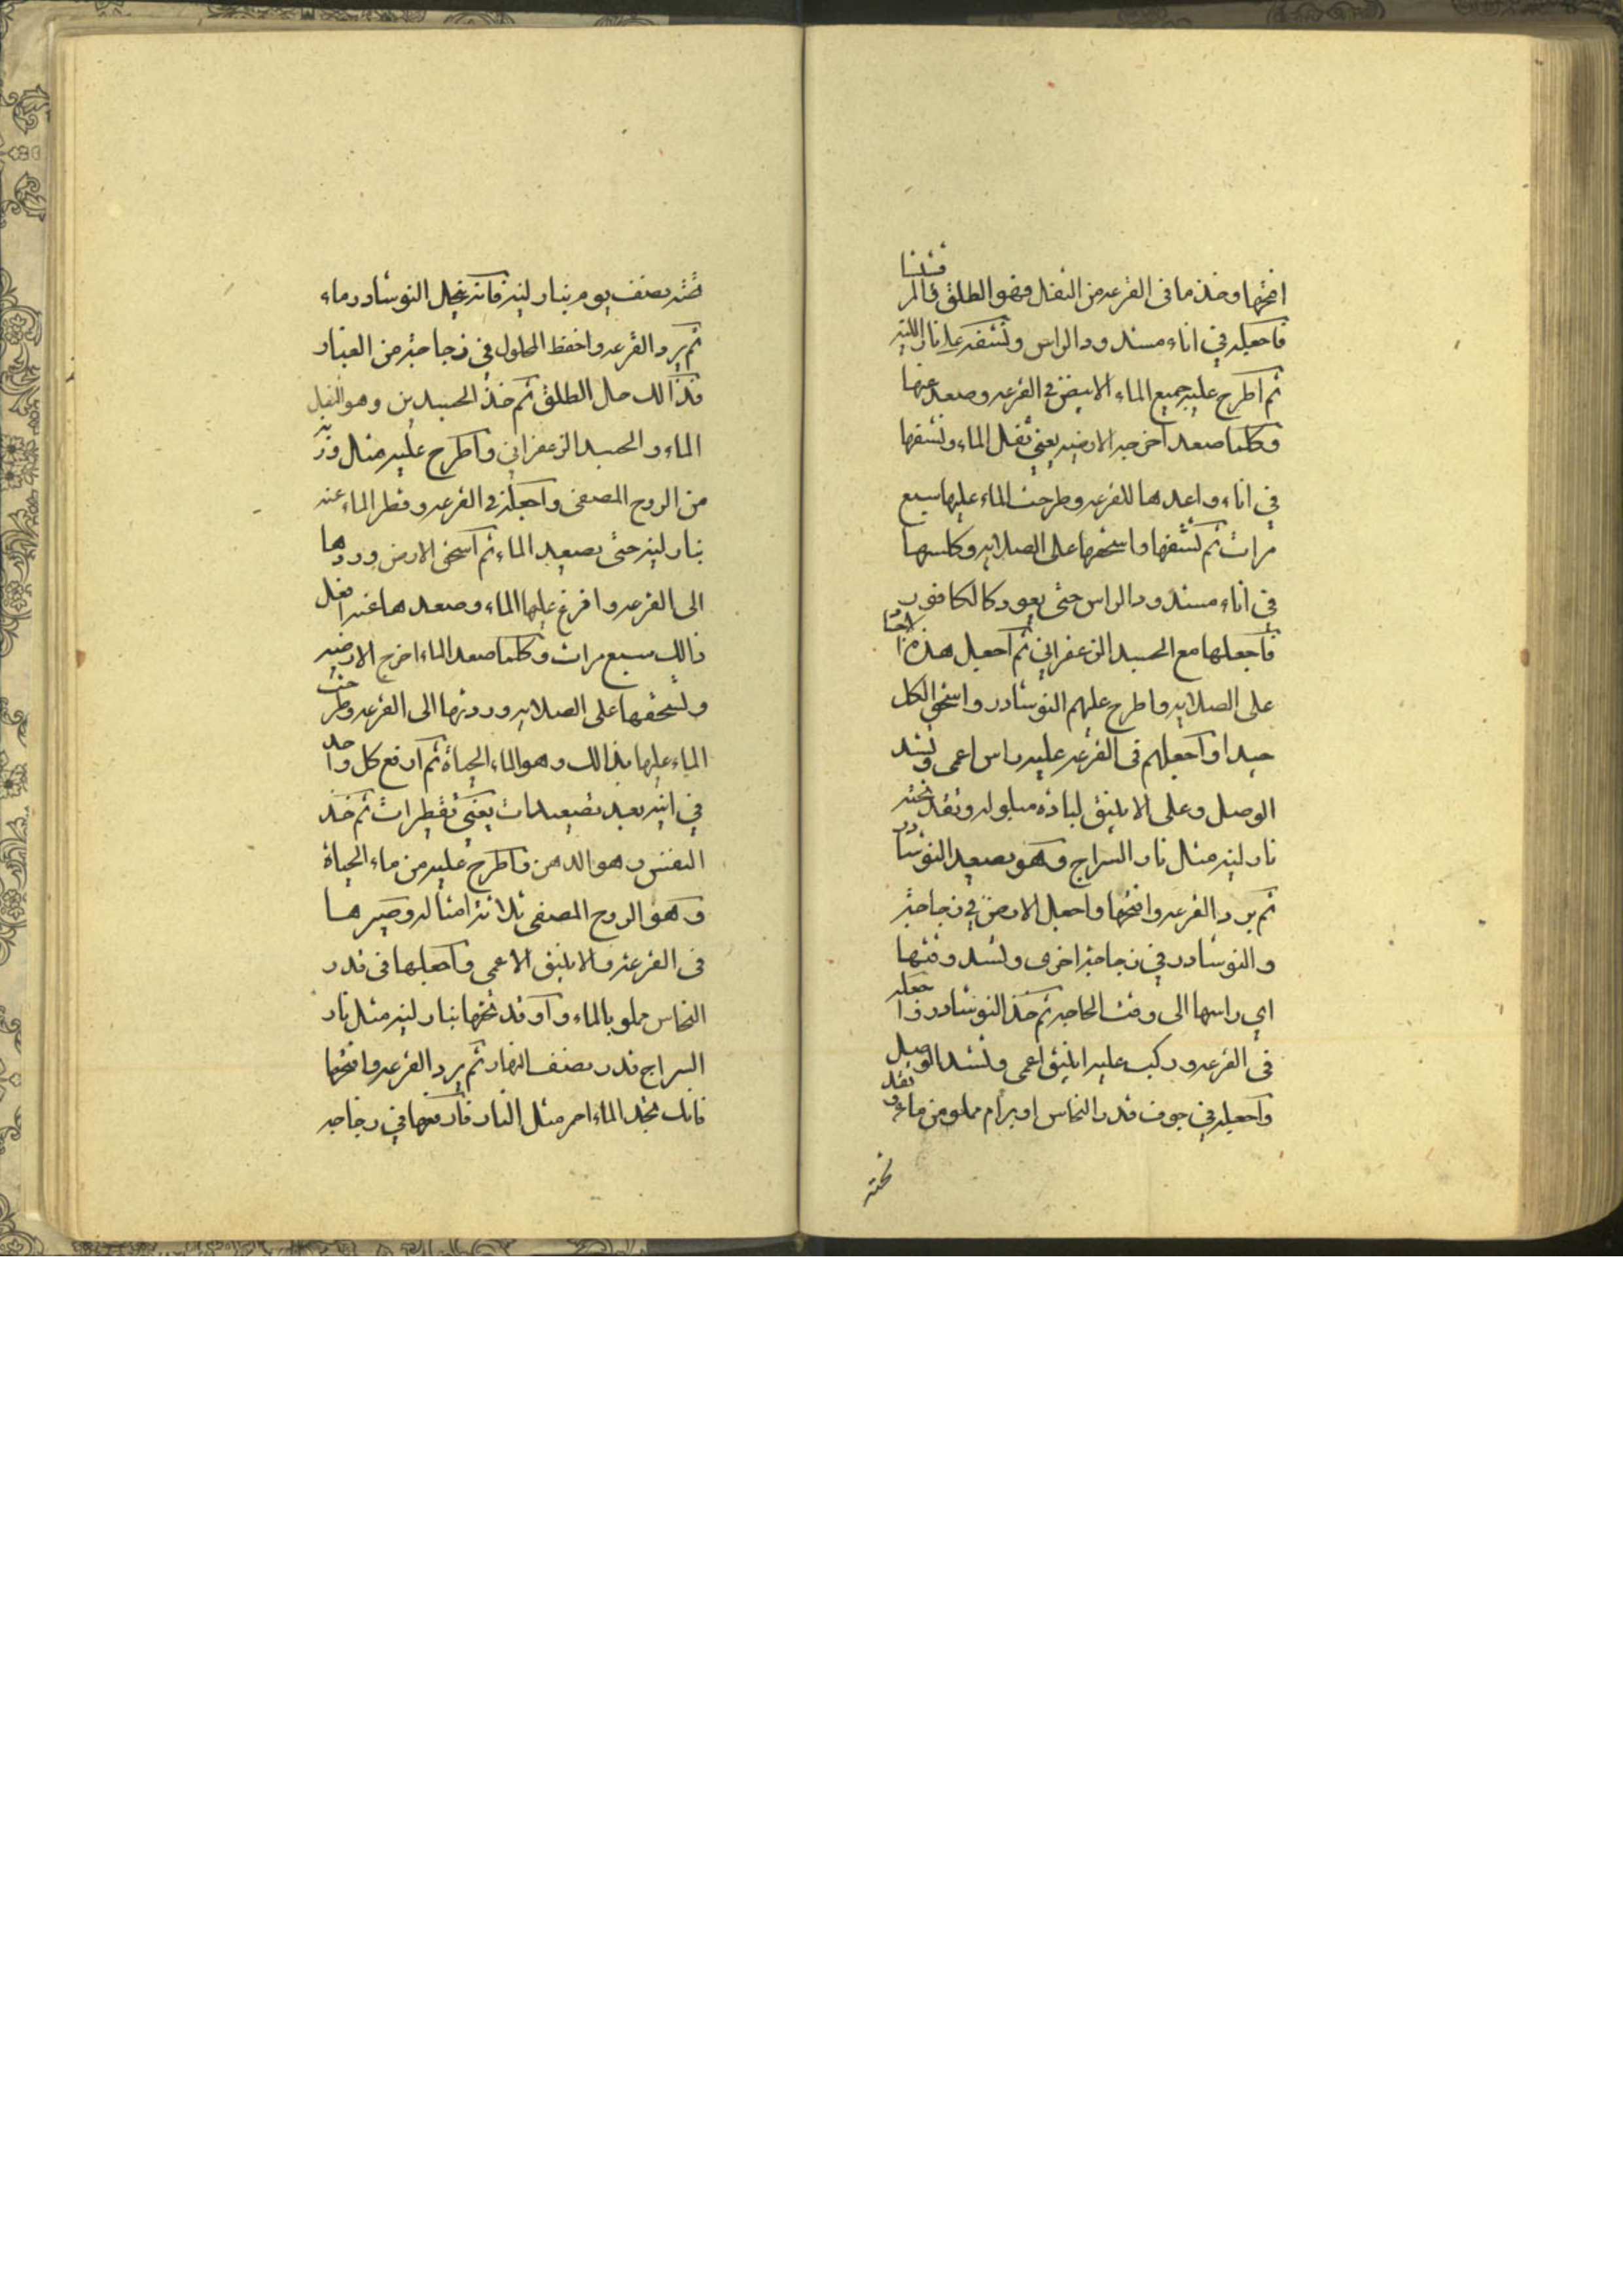 افتحها وخذ ما فى القرعه من الثفل فهو الطلق والمرقشيثا
فاجعله في اناء مسدود الراس وتشفه على نار اللينه
ثم اطرح عليه جميع الماء الابيض في القرعه وصعد عنها
وكلما صعد اخرجه الارضيه يعني ثفل الماء وتشفها
في اناء واعدها للقرعه وطرحت الماء عليها سبع
مرات ثم تشفها واسحقها على الصلايه وكلسها
في اناء مسدود الراس حتى يعود كالكافور
فاجعلها مع الجسد الزعفراني ثم اجعل هذه
على الصلايه واطرح عليهم النوشادر واسحق الكل
جيدا واجعلهم فى القرعه عليه راس اعمى وتشد
الوصل وعلى الانبيق لباده مبلوله وتقد تحته
نار لينه مثل نار السراج وهو يصعد النوشادر
ثم برد القرعه وافتحها واجعل الارض في زجاجة
والنوشادر في زجاجة اخرى وتشد
اي راسها الى وقت الحاجه ثم خذ النوشادر واجعله
فى القرعه وركب عليه انبيق اعمى وتشد الوصل
واجعله في جوف قدر النحاس او برام مملو من ماء وتقد
تحته
تحته نصف يوم بنار لينه فانه ينحل النوشادر ماء
ثم برد القرعه واحفظ المحلول في زجاجة من الغبار
فذالك حال الطلق ثم خذ الجسدين وهو الثفل
الماء والجسد الزعفراني واطرح عليه مثل وزنه
من الروح المصفى واجعله في القرعه وقطر الماء عنه
بنار لينه حتى يصعد الماء ثم اسحق الارض وردها
الى القرعه وافرغ عليها الماء وصعدها عنه افعل
ذالك سبع مرات وكلما صعد الماء اخرج الارضيه
وتسحقها على الصلايه ورددتها الى القرعه وطرحت
الماء عليها بذالك وهو الماء الحياة ثم ارفع كل واحد
في انيه بعد تصعيدات يعني تقطيرات ثم خذ
النفس وهو الدهن واطرح عليه من ماء الحياة
وهو الروح المصفى ثلاثة امثاله وصيرها
فى القرعة والانبيق الاعمى واجعلها فى قدر
النحاس مملو بالماء واوقد تحتها بنار لينه مثل نار
السراج قدر نصف النهار ثم برد القرعه وافتحها
فانك تجد الماء احمر مثل النار فارفعها في زجاجه